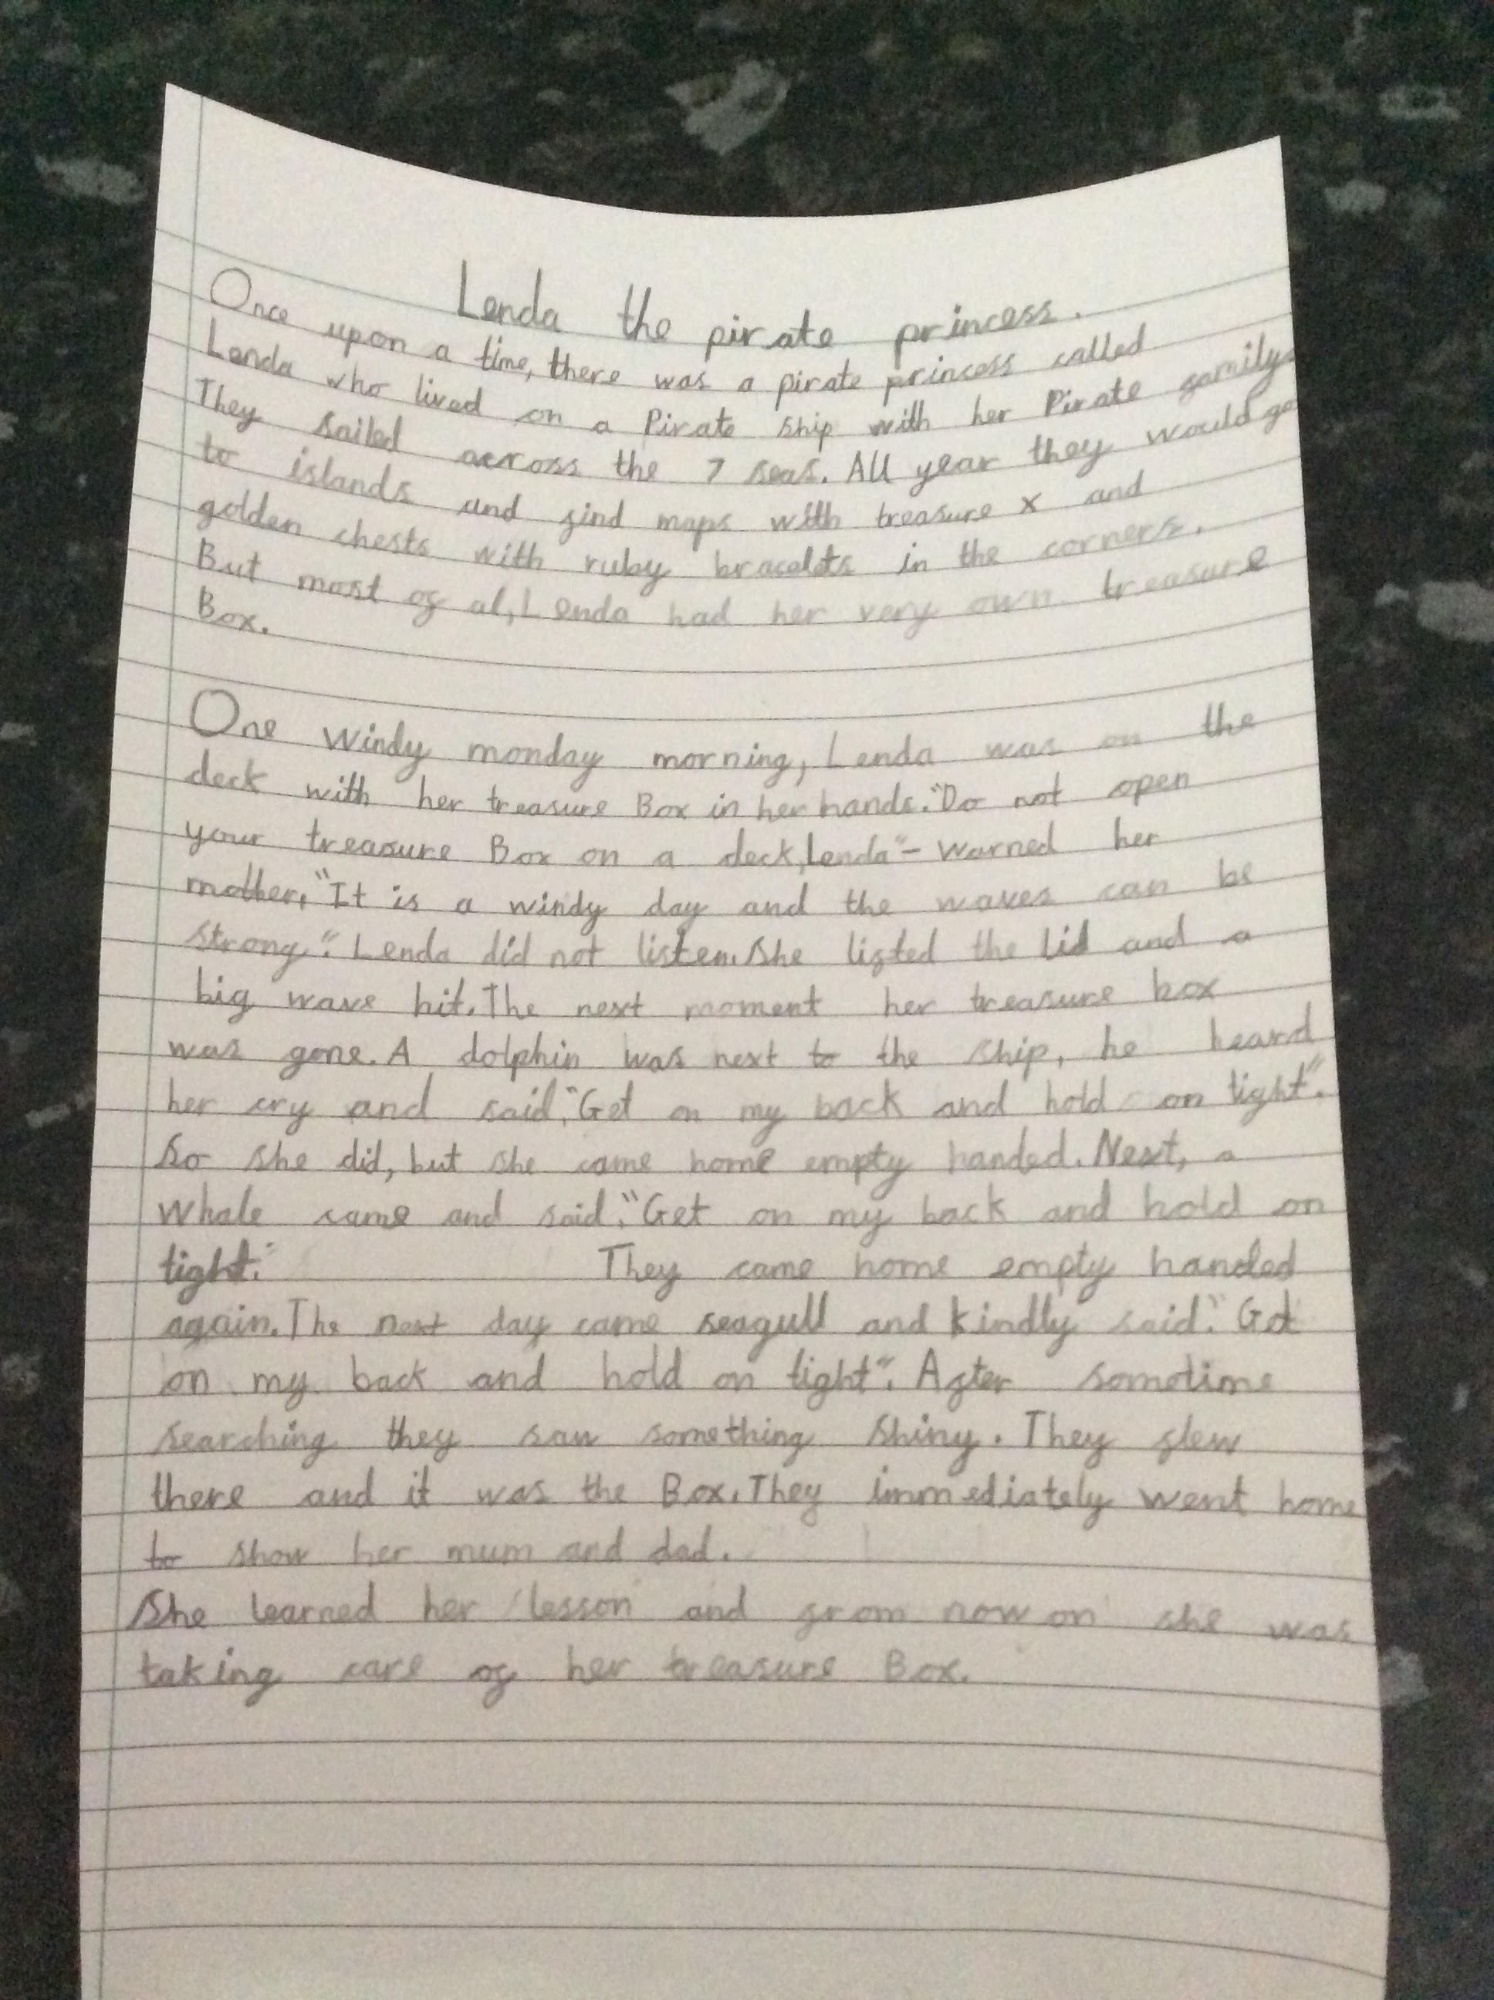 Lenda the pirate princess.
Once upon a time, there was a pirate princess called
Lenda who lived on a Pirate ship with her Pirate family.
They sailed across the 7 seas. All year they would go
to islands and find maps with treasure x and
golden chests with ruby bracelets in the corners.
But most of al, Lenda had her very own treasure
Box.
One windy monday morning, Lenda was on the
deck with her treasure Box in her hands. "Do not open
your treasure Box on a deck, Lenda" - warned her
mother, "It is a windy day and the waves can be
strong". Lenda did not listen. She lifted the lid and a
big wave hit. The next moment her treasure box
was gone. A dolphin was next to the ship, he heard
her cry and said, "Get on my back and hold on tight".
So she did, but she came home empty handed. Next, a
whale came and said, "Get on my back and hold on
tight." They came home empty handed
again. The next day came seagull and kindly said, "Get
on my back and hold on tight". After sometime
searching they saw something shiny. They flew
there and it was the Box. They immediately went home
to show her mum and dad.
She learned her lesson and from now on she was
taking care of her treasure Box.